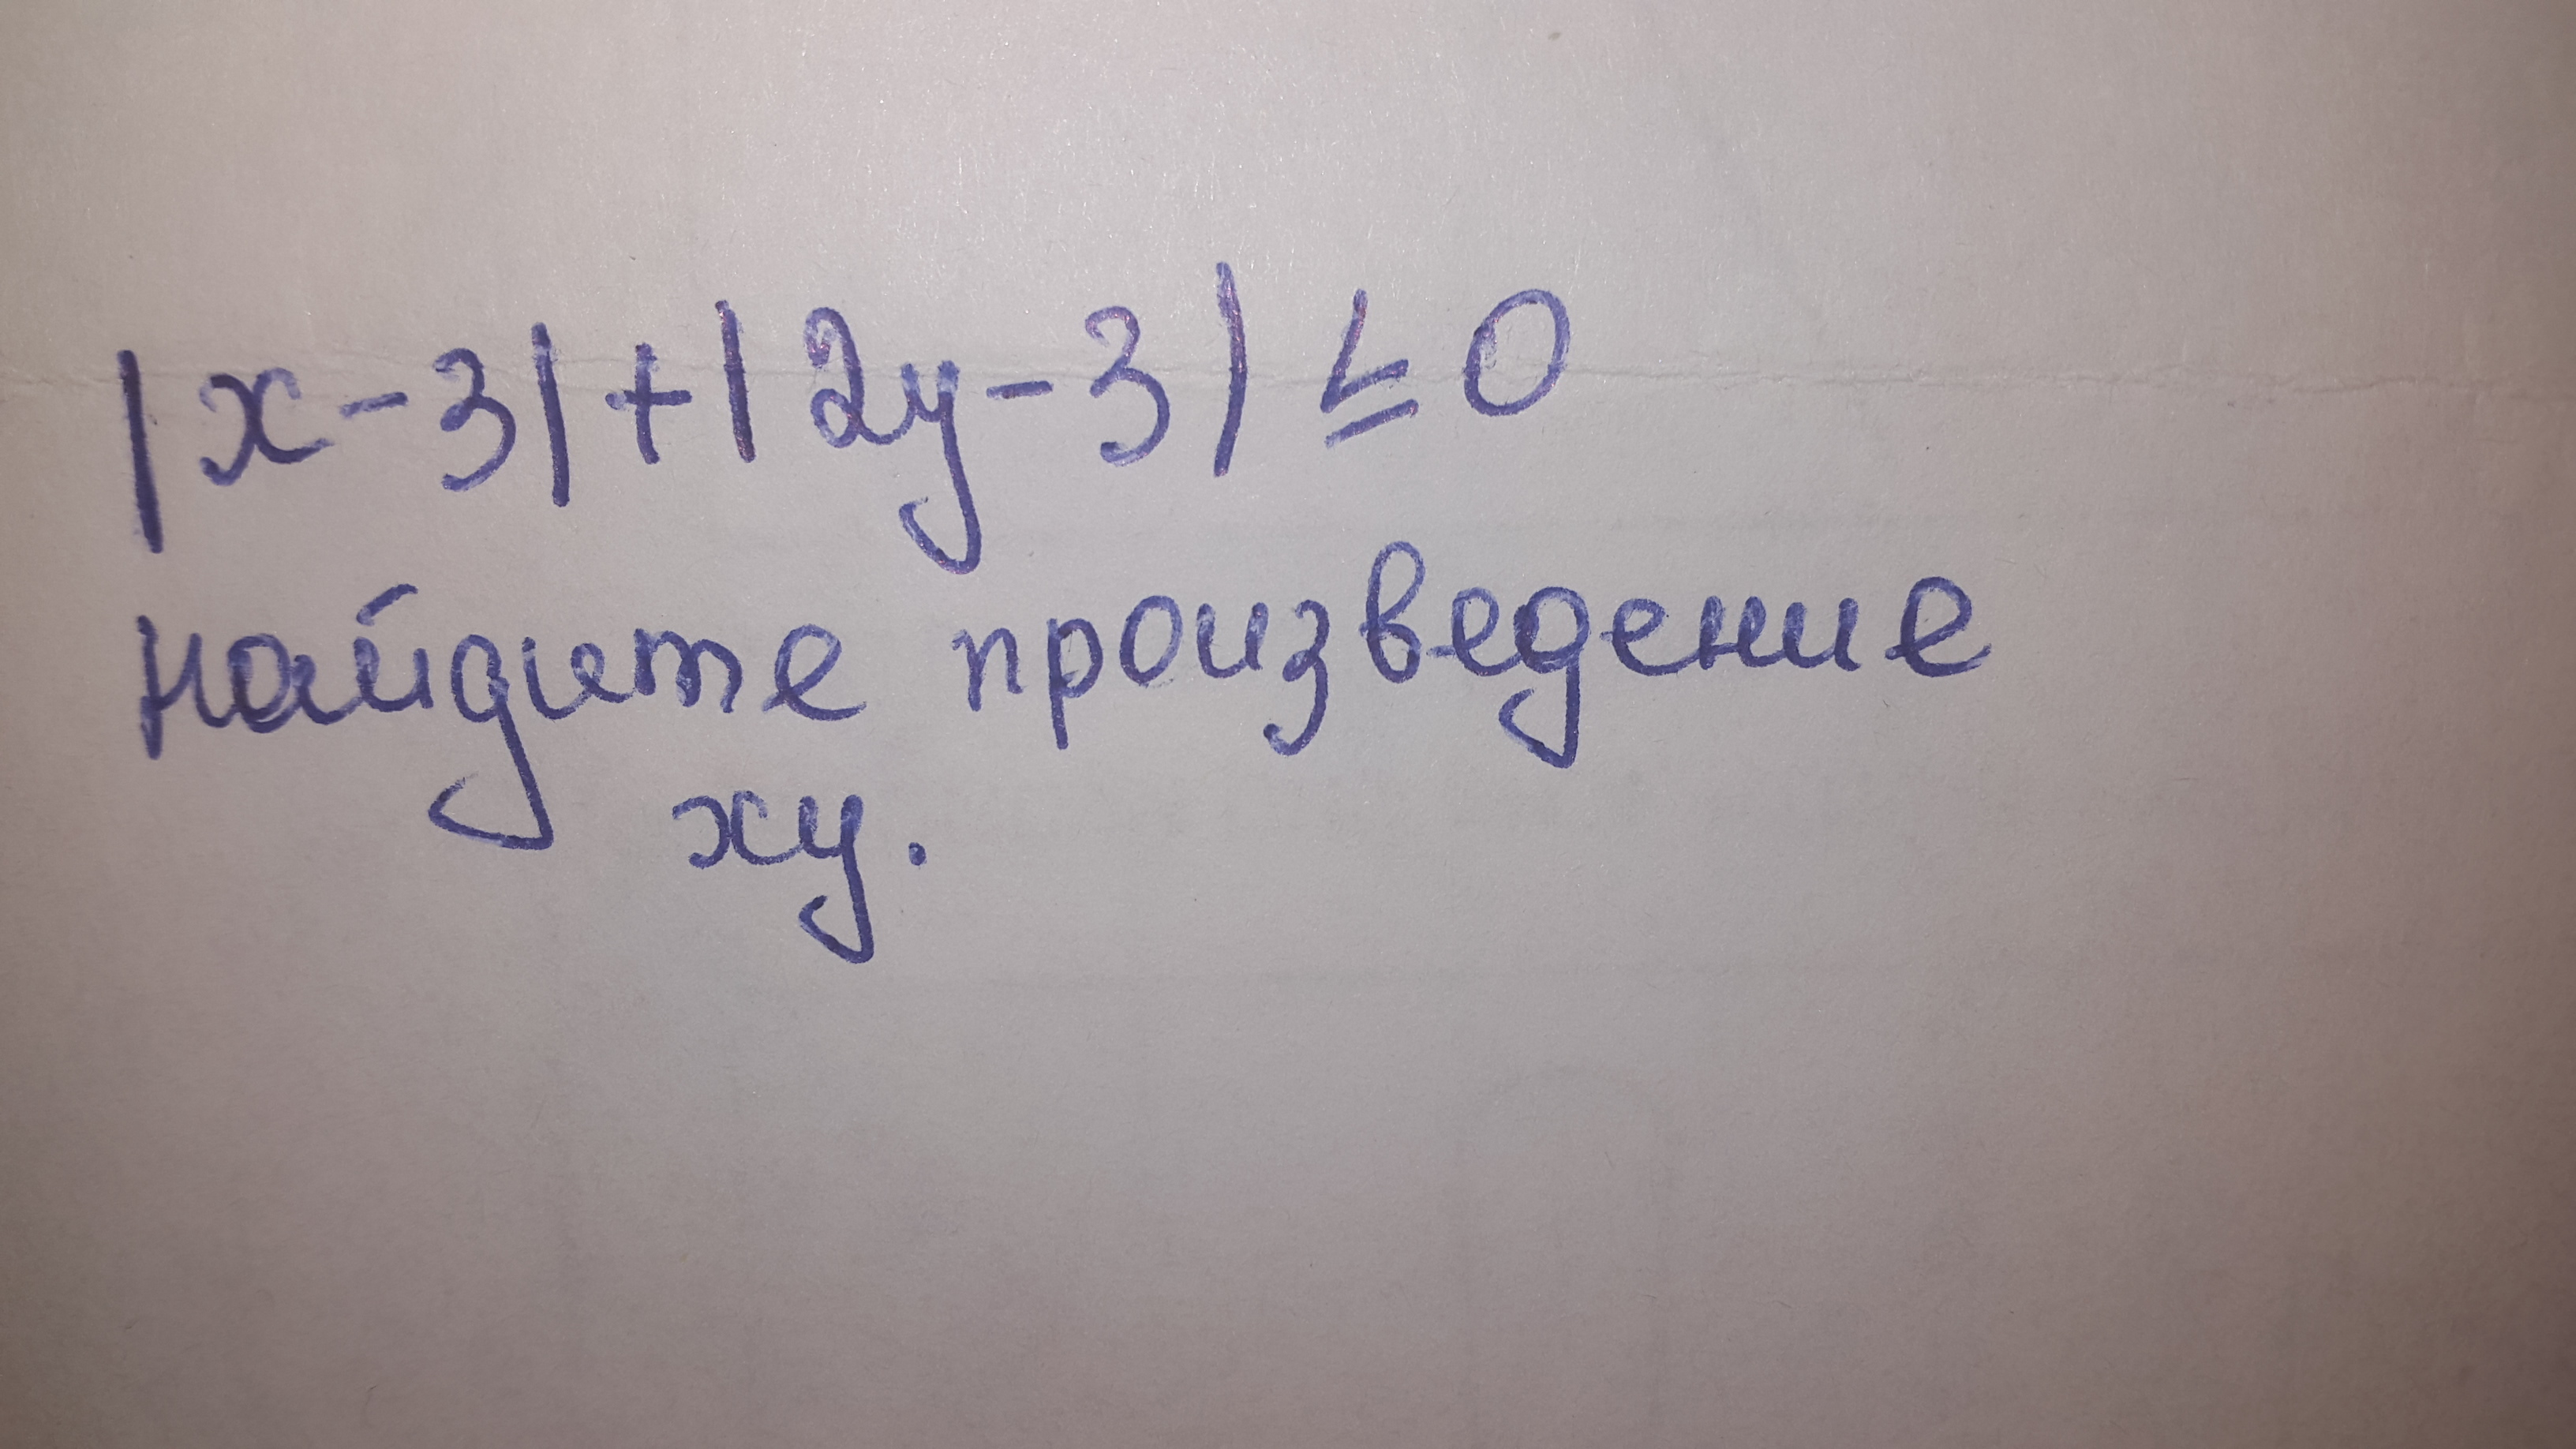 |x-3|+|2y-3| ≤ 0
найдите произведение
xy.